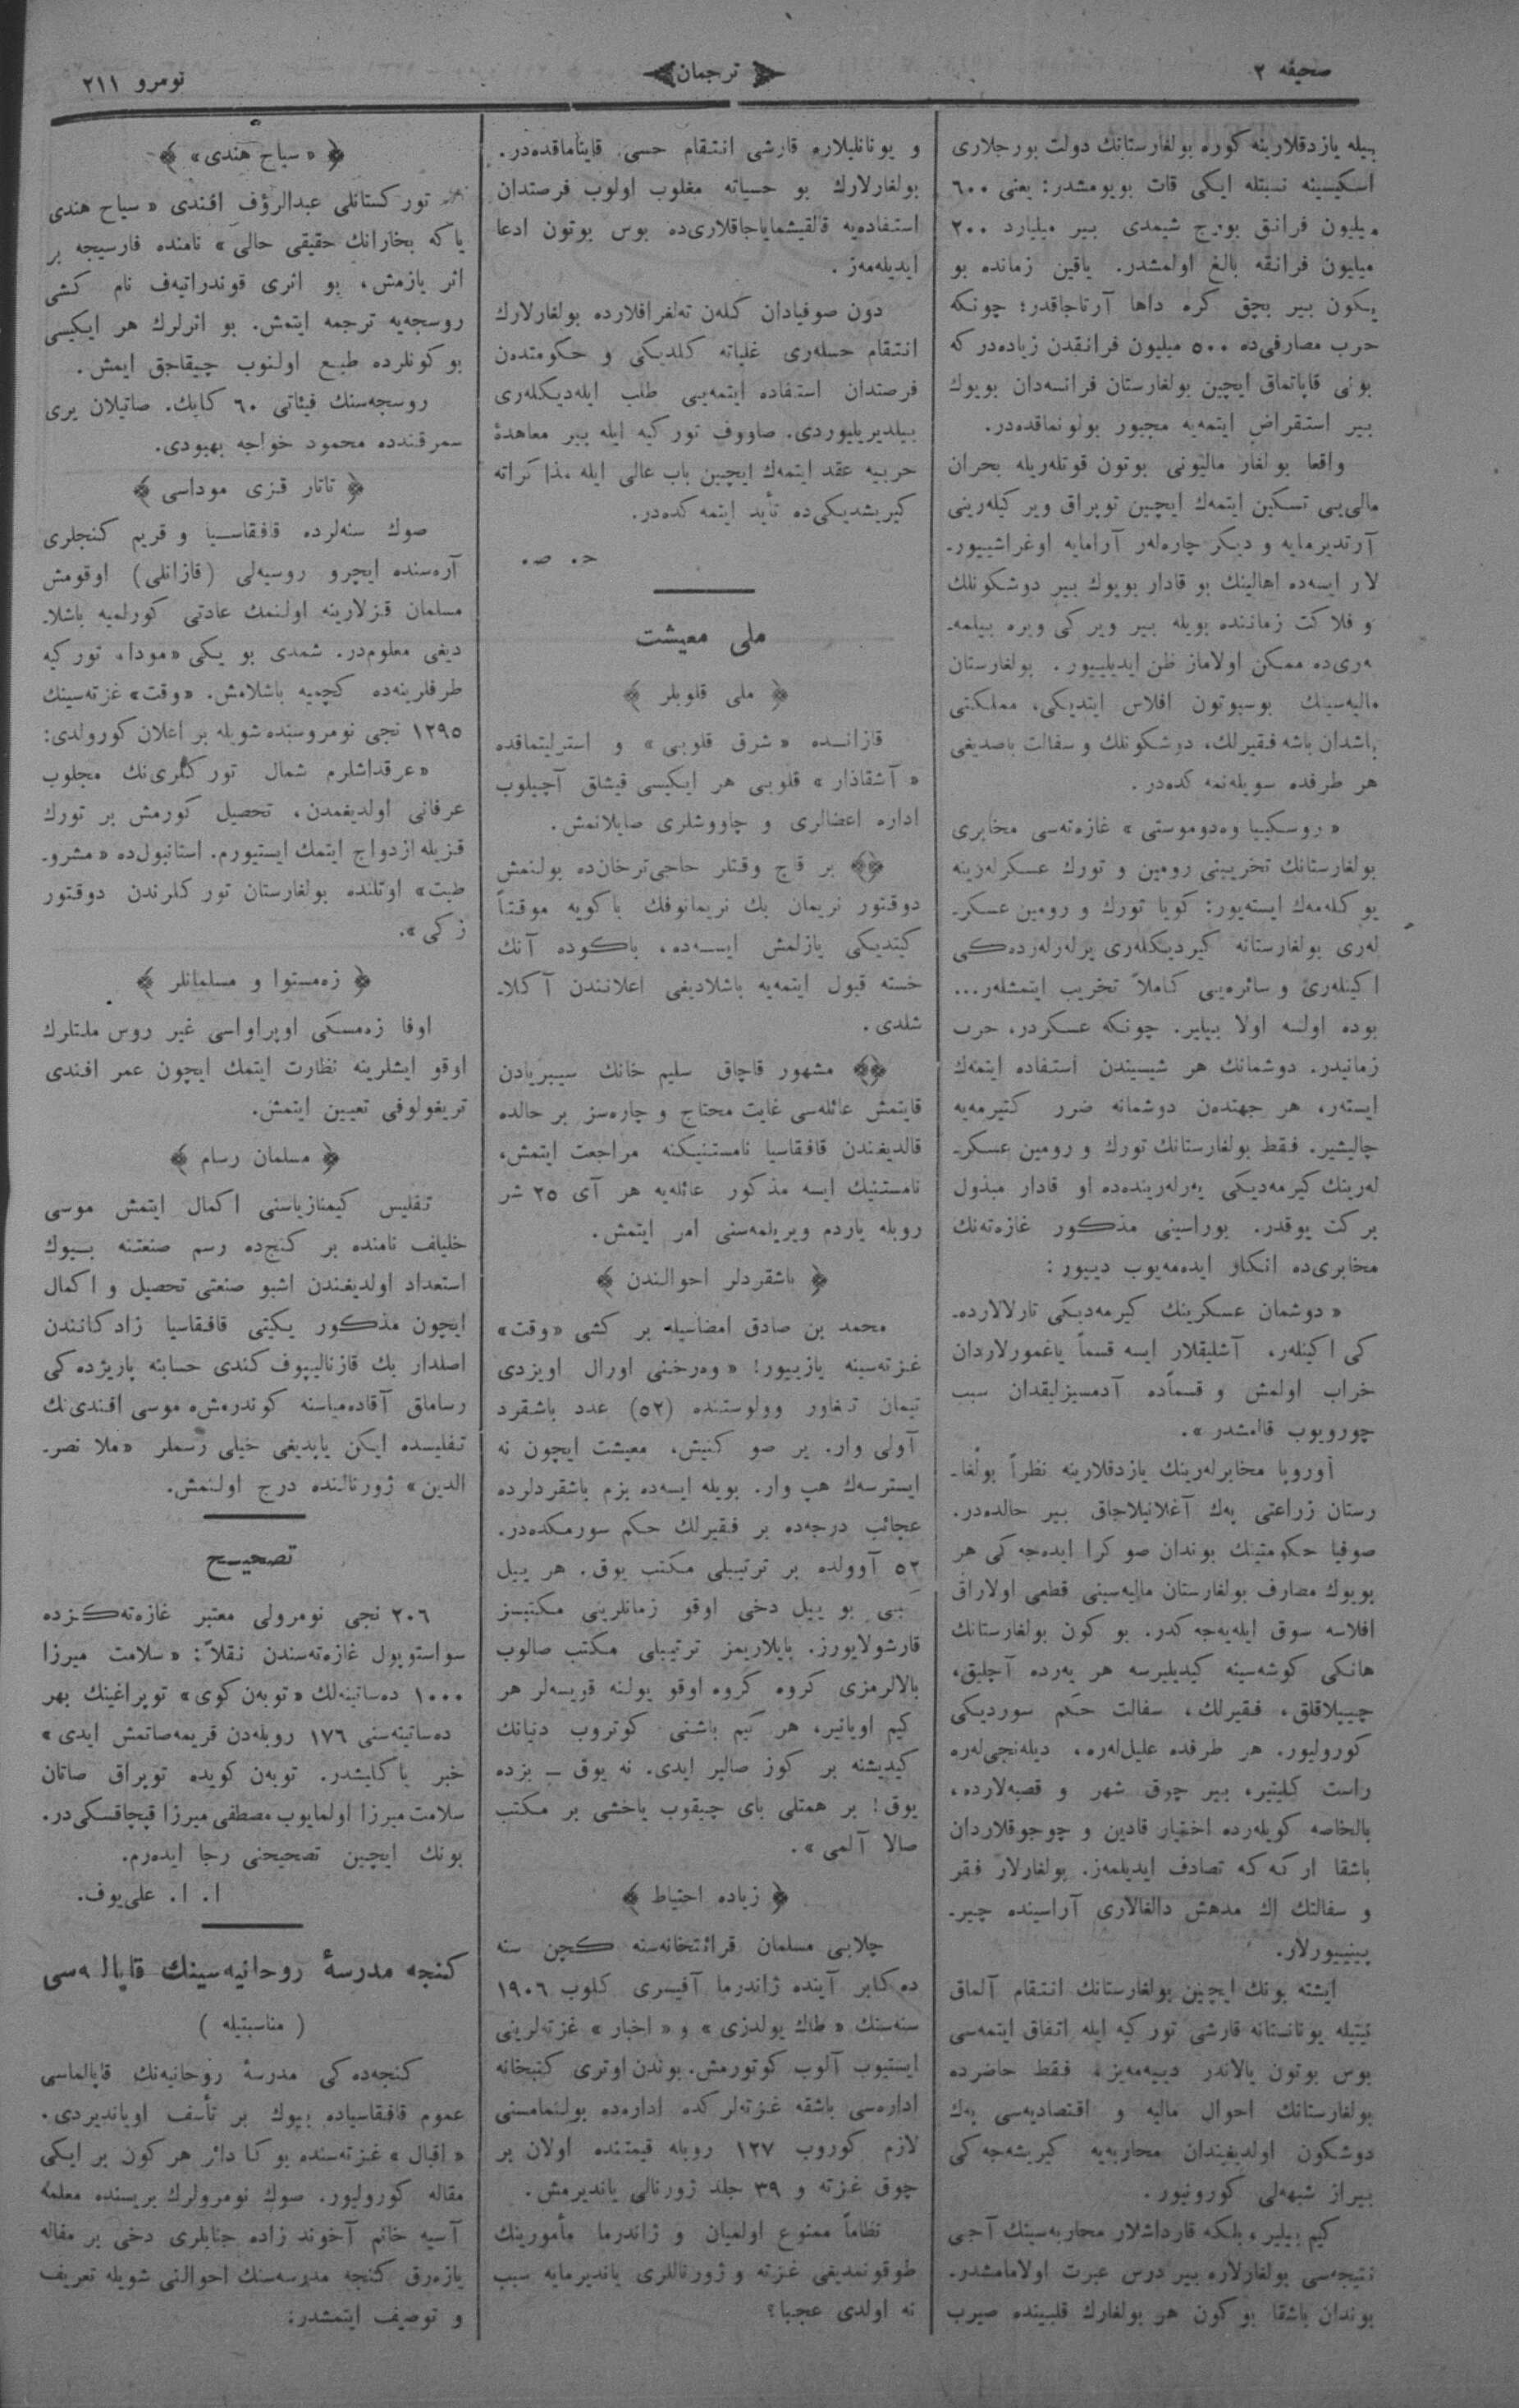 صحیفه ٢
ترجمان
نومرو ٢١١
بیله یازدقلارینه کوره بولغارستانك دولت بورجلاری
اسکیسینه نسبتله ایکی قات بویومشدر: یعنی ٦٠٠
میلیون فرانق بورج شیمدی بیر میلیارد ٢٠٠
میلیون فرانقه بالغ اولمشدر. یاقین زمانده بو
یکون بیر بچق کره داها آرتاجاقدر؛ چونکه
حرب مصارفی‌ده ٥٠٠ میلیون فرانقدن زیاده‌در که
بونی قاپاتماق ایچین بولغارستان فرانسه‌دان بویوك
بیر استقراض ایتمه‌یه مجبور بولونماقده‌در.
واقعا بولغار مالیونی بوتون قوتله‌ریله بحران
مالی‌یی تسکین ایتمه‌ك ایچین توپراق ویرکیله‌رینی
آرتدیرمایه و دیکر چاره‌لەر آرامایه اوغراشییور۔
لار ایسه‌ده اهالینك بو قادار بویوك بیر دوشکونلك
و فلاکت زماننده بویله بیر ویرکی ویره بیلمه۔
ەری‌ده ممکن اولاماز ظن ایدیلییور. بولغارستان
مالیه‌سینك بوسبوتون افلاس ایتدیکی، مملکتی
باشدان باشه فقیرلك، دوشکونلك و سفالت باصدیغی
هر طرفده سویله‌نمه کده‌در.
« روسکییا وه‌دوموستی » غازه‌ته‌سی مخابری
بولغارستانك تخریبنی رومین و تورك عسکرله‌رینه
یوکله‌مه‌ك ایسته‌یور: کویا تورك و رومین عسکر۔
له‌ری بولغارستانه کیردیکله‌ری یرله‌رده‌کی
اکینله‌ری و سائره‌یی کاملاً تخریب ایتمشلەر...
بوده اولسه اولا بیلیر. چونکه عسکردر، حرب
زمانیدر. دوشمانك هر شیسیندن استفاده ایتمه‌ك
ایستەر، هر جهتدەن دوشمانه ضرر کتیرمه‌یه
چالیشیر. فقط بولغارستانك تورك و رومین عسکر۔
له‌رینك کیرمه‌دیکی یەرله‌رینده‌ده او قادار مبذول
برکت یوقدر. بوراسینی مذکور غازه‌ته‌نك
مخابری‌ده انکار ایده‌مه‌یوب دییور:
« دوشمان عسکرینك کیرمه‌دیکی تارلالارده۔
کی اکینلەر، آشلیقلار ایسه قسماً یاغمورلاردان
خراب اولمش و قسماًده آدمسیزلیقدان سبب
چورویوب قالمشدر ».
اوروپا مخابرله‌رینك یازدقلارینه نظراً بولغا۔
رستان زراعتی پەك آغلانیلاجاق بیر حالده‌در.
صوفیا حکومتینك بوندان صوکرا ایده‌جه‌کی هر
بویوك مصارف بولغارستان مالیه‌سینی قطعی اولاراق
افلاسه سوق ایله‌یه‌جه‌کدر. بو کون بولغارستانك
هانکی کوشه‌سینه کیدیلیرسه هر یەرده آچلیق،
چیپلاقلق، فقیرلك، سفالت حکم سوردیکی
کورولیور. هر طرفده علیل‌لەره، دیله‌نجی‌لەره
راست کلینیر، بیر چوق شهر و قصبه‌لارده،
بالخاصه کویلەرده اختیار قادین و چوجوقلاردان
باشقا ارکه‌که تصادف ایدیلمەز. بولغارلار فقر
و سفالتك اك مدهش دالغالاری آراسینده چیر۔
پینییورلار.
ایشته بونك ایچین بولغارستانك انتقام آلماق
نیتیله یونانستانه قارشی تورکیه ایله اتفاق ایتمه‌سی
بوس بوتون یالاندر دییه‌مه‌یز، فقط حاضرده
بولغارستانك احوال مالیه و اقتصادیه‌سی پەك
دوشکون اولدیغیندان محاربه‌یه کیریشه‌جه‌کی
بیراز شبهه‌لی کورونیور.
کیم بیلیر، بلکه قارداشلار محاربه‌سینك آجی
نتیجه‌سی بولغارلاره بیر درس عبرت اولامامشدر.
بوندان باشقا بو کون هر بولغارك قلبینده صیرب
و یونانلیلاره قارشی انتقام حسی قایناماقده‌در.
بولغارلارك بو حسیاته مغلوب اولوب فرصتدان
استفاده‌یه قالقیشمایاجاقلاری‌ده بوس بوتون ادعا
ایدیله‌مەز.
دون صوفیادان کله‌ن ته‌لغرافلارده بولغارلارك
انتقام حسله‌ری غلیانه کلدیکی و حکومتدەن
فرصتدان استفاده ایتمه‌یی طلب ایله‌دیکله‌ری
بیلدیریلیوردی. صاووف تورکیه ایله بیر معاهدهٔ
حربیه عقد ایتمه‌ك ایچین باب عالی ایله مذاکراته
کیریشدیکی‌ده تأید ایتمه کده‌در.
ح. ص.
ملی معیشت
ملی قلوبلر
قازانده « شرق قلوبی » و استرلیتماقده
« آشقاذار » قلوبی هر ایکیسی قیشلق آچیلوب
اداره اعضالری و چاووشلری صایلانمش.
بر قاچ وقتلر حاجی‌ترخان‌ده بولنمش
دوقتور نریمان بك نریمانوفك باکویه موقتاً
کیتدیکی یازلمش ایسه‌ده، باکوده آنك
خسته قبول ایتمه‌یه باشلادیغی اعلانندن آکلا۔
شلدی.
مشهور قاچاق سلیم خانك سیبریادن
قایتمش عائله‌سی غایت محتاج و چاره‌سز بر حالده
قالدیغندن قافقاسیا نامستنیکنه مراجعت ایتمش،
نامستنیك ایسه مذکور عائله‌یه هر آی ٢٥ شر
روبله یاردم ویریلمه‌سنی امر ایتمش.
باشقردلر احوالندن
محمد بن صادق امضاسیله بر کشی «وقت»
غزته‌سینه یازییور: «وەرخنی اورال اویزدی
تیمان تنغاور وولوستنده (٥٢) عدد باشقرد
آولی وار. یر صو کنیش، معیشت ایچون نه
ایسترسه‌ك هپ وار. بویله ایسه‌ده بزم باشقردلرده
عجائب درجه‌ده بر فقیرلك حکم سورمکده‌در.
٥٢ آوولده بر ترتیبلی مکتب یوق. هر ییل
بو ییل دخی اوقو زمانلرینی مکتبسز
قارشولایورز. بایلاریمز ترتیبلی مکتب صالوب
بالالرمزی کروه کروه اوقو یولنه قویسه‌لر هر
کیم اویانیر، هر کیم باشنی کوتروب دنیانك
کیدیشنه بر کوز صالیر ایدی. نه یوق – بزده
یوق! بر همتلی بای چیقوب یاخشی بر مکتب
صالا آلمی ».
زیاده احتیاط
چلابی مسلمان قرائتخانه‌سنه کچن سنه
ده‌کابر آینده ژاندرما آفیسری کلوب ١٩٠٦
سنه‌سنك « طاك یولدزی » و « اخبار » غزته‌لرینی
ایستیوب آلوب کوتورمش. بوندن اوتری کتبخانه
اداره‌سی باشقه غزته‌لرکده اداره‌ده بولنمامسنی
لازم کوروب ١٢٧ روبله قیمتنده اولان بر
چوق غزته و ٣٩ جلد ژورنالی یاندیرمش.
نظاماً ممنوع اولمیان و ژاندرما مأمورینك
طوقونمدیغی غزته و ژورناللری یاندیرمایه سبب
نه اولدی عجبا؟
« سیاح هندی »
تورکستانلی عبدالرؤف افندی « سیاح هندی
یاکه بخارانك حقیقی حالی » نامنده فارسیجه بر
اثر یازمش، بو اثری قوندراتیه‌ف نام کشی
روسجه‌یه ترجمه ایتمش. بو اثرلرك هر ایکیسی
بو کونلرده طبع اولنوب چیقاجق ایمش.
روسجه‌سنك فیئاتی ٦٠ کاپك. صاتیلان یری
سمرقندده محمود خواجه بهبودی.
تاتار قزی موداسی
صوك سنه‌لرده قافقاسیا و قریم کنجلری
آره‌سنده ایچرو روسیه‌لی (قازانلی) اوقومش
مسلمان قزلارینه اولنمك عادتی کورلمیه باشلا۔
دیغی معلوم‌در. شمدی بو یکی «مودا» تورکیه
طرفلرینه‌ده کچمیه باشلامش. «وقت» غزته‌سینك
١٢٩٥ نجی نومروسنده شویله بر اعلان کورولدی:
«عرقداشلرم شمال تورکلری‌نك مجلوب
عرفانی اولدیغمدن، تحصیل کورمش بر تورك
قزیله ازدواج ایتمك ایستیورم. استانبول‌ده «مشرو۔
طیت» اوتلنده بولغارستان تورکلرندن دوقتور
زکی».
زەمستوا و مسلمانلر
اوفا زەمسکی اوپراواسی غیر روس ملتلرك
اوقو ایشلرینه نظارت ایتمك ایچون عمر افندی
تریغولوفی تعیین ایتمش.
مسلمان رسام
تفلیس کیمنازیاسنی اکمال ایتمش موسی
خلیلف نامنده بر کنج‌ده رسم صنعتنه بیوك
استعداد اولدیغندن اشبو صنعتی تحصیل و اکمال
ایچون مذکور یکیتی قافقاسیا زادکانندن
اصلدار بك قازنالیپوف کندی حسابنه پاریژده‌کی
رساملق آقاده‌میاسنه کوندرمش. موسی افندی‌نك
تفلیسده ایکن یاپدیغی خیلی رسملر «ملا نصر۔
الدین» ژورنالنده درج اولنمش.
تصحیح
٢٠٦ نجی نومرولی معتبر غازه‌ته‌کزده
سواستوپول غازه‌ته‌سندن نقلاً: «سلامت میرزا
١٠٠٠ ده‌ساتینه‌لك «توبه‌ن کوی» توپراغینك بهر
ده‌ساتینه‌سنی ١٧٦ روبله‌دن قریمه‌صاتمش ایدی»
خبر یاکلیشدر. توبه‌ن کویده توپراق صاتان
سلامت میرزا اولمایوب مصطفی میرزا قپچاقسکی‌در.
بونك ایچین تصحیحنی رجا ایده‌رم.
ا. ا. علی‌یوف.
کنجه مدرسهٔ روحانیه‌سینك قاپالمه‌سی
( مناسبتیله )
کنجه‌ده‌کی مدرسهٔ روحانیه‌نك قاپالماسی
عموم قافقاسیاده بیوك بر تأسف اویاندیردی.
« اقبال » غزته‌سنده بوکا دائر هر کون بر ایکی
مقاله کورولیور. صوك نومرولرك بریسنده معلمه
آسیه خانم آخوند زاده جنابلری دخی بر مقاله
یازه‌رق کنجه مدرسه‌سنك احوالنی شویله تعریف
و توصیف ایتمشدر: